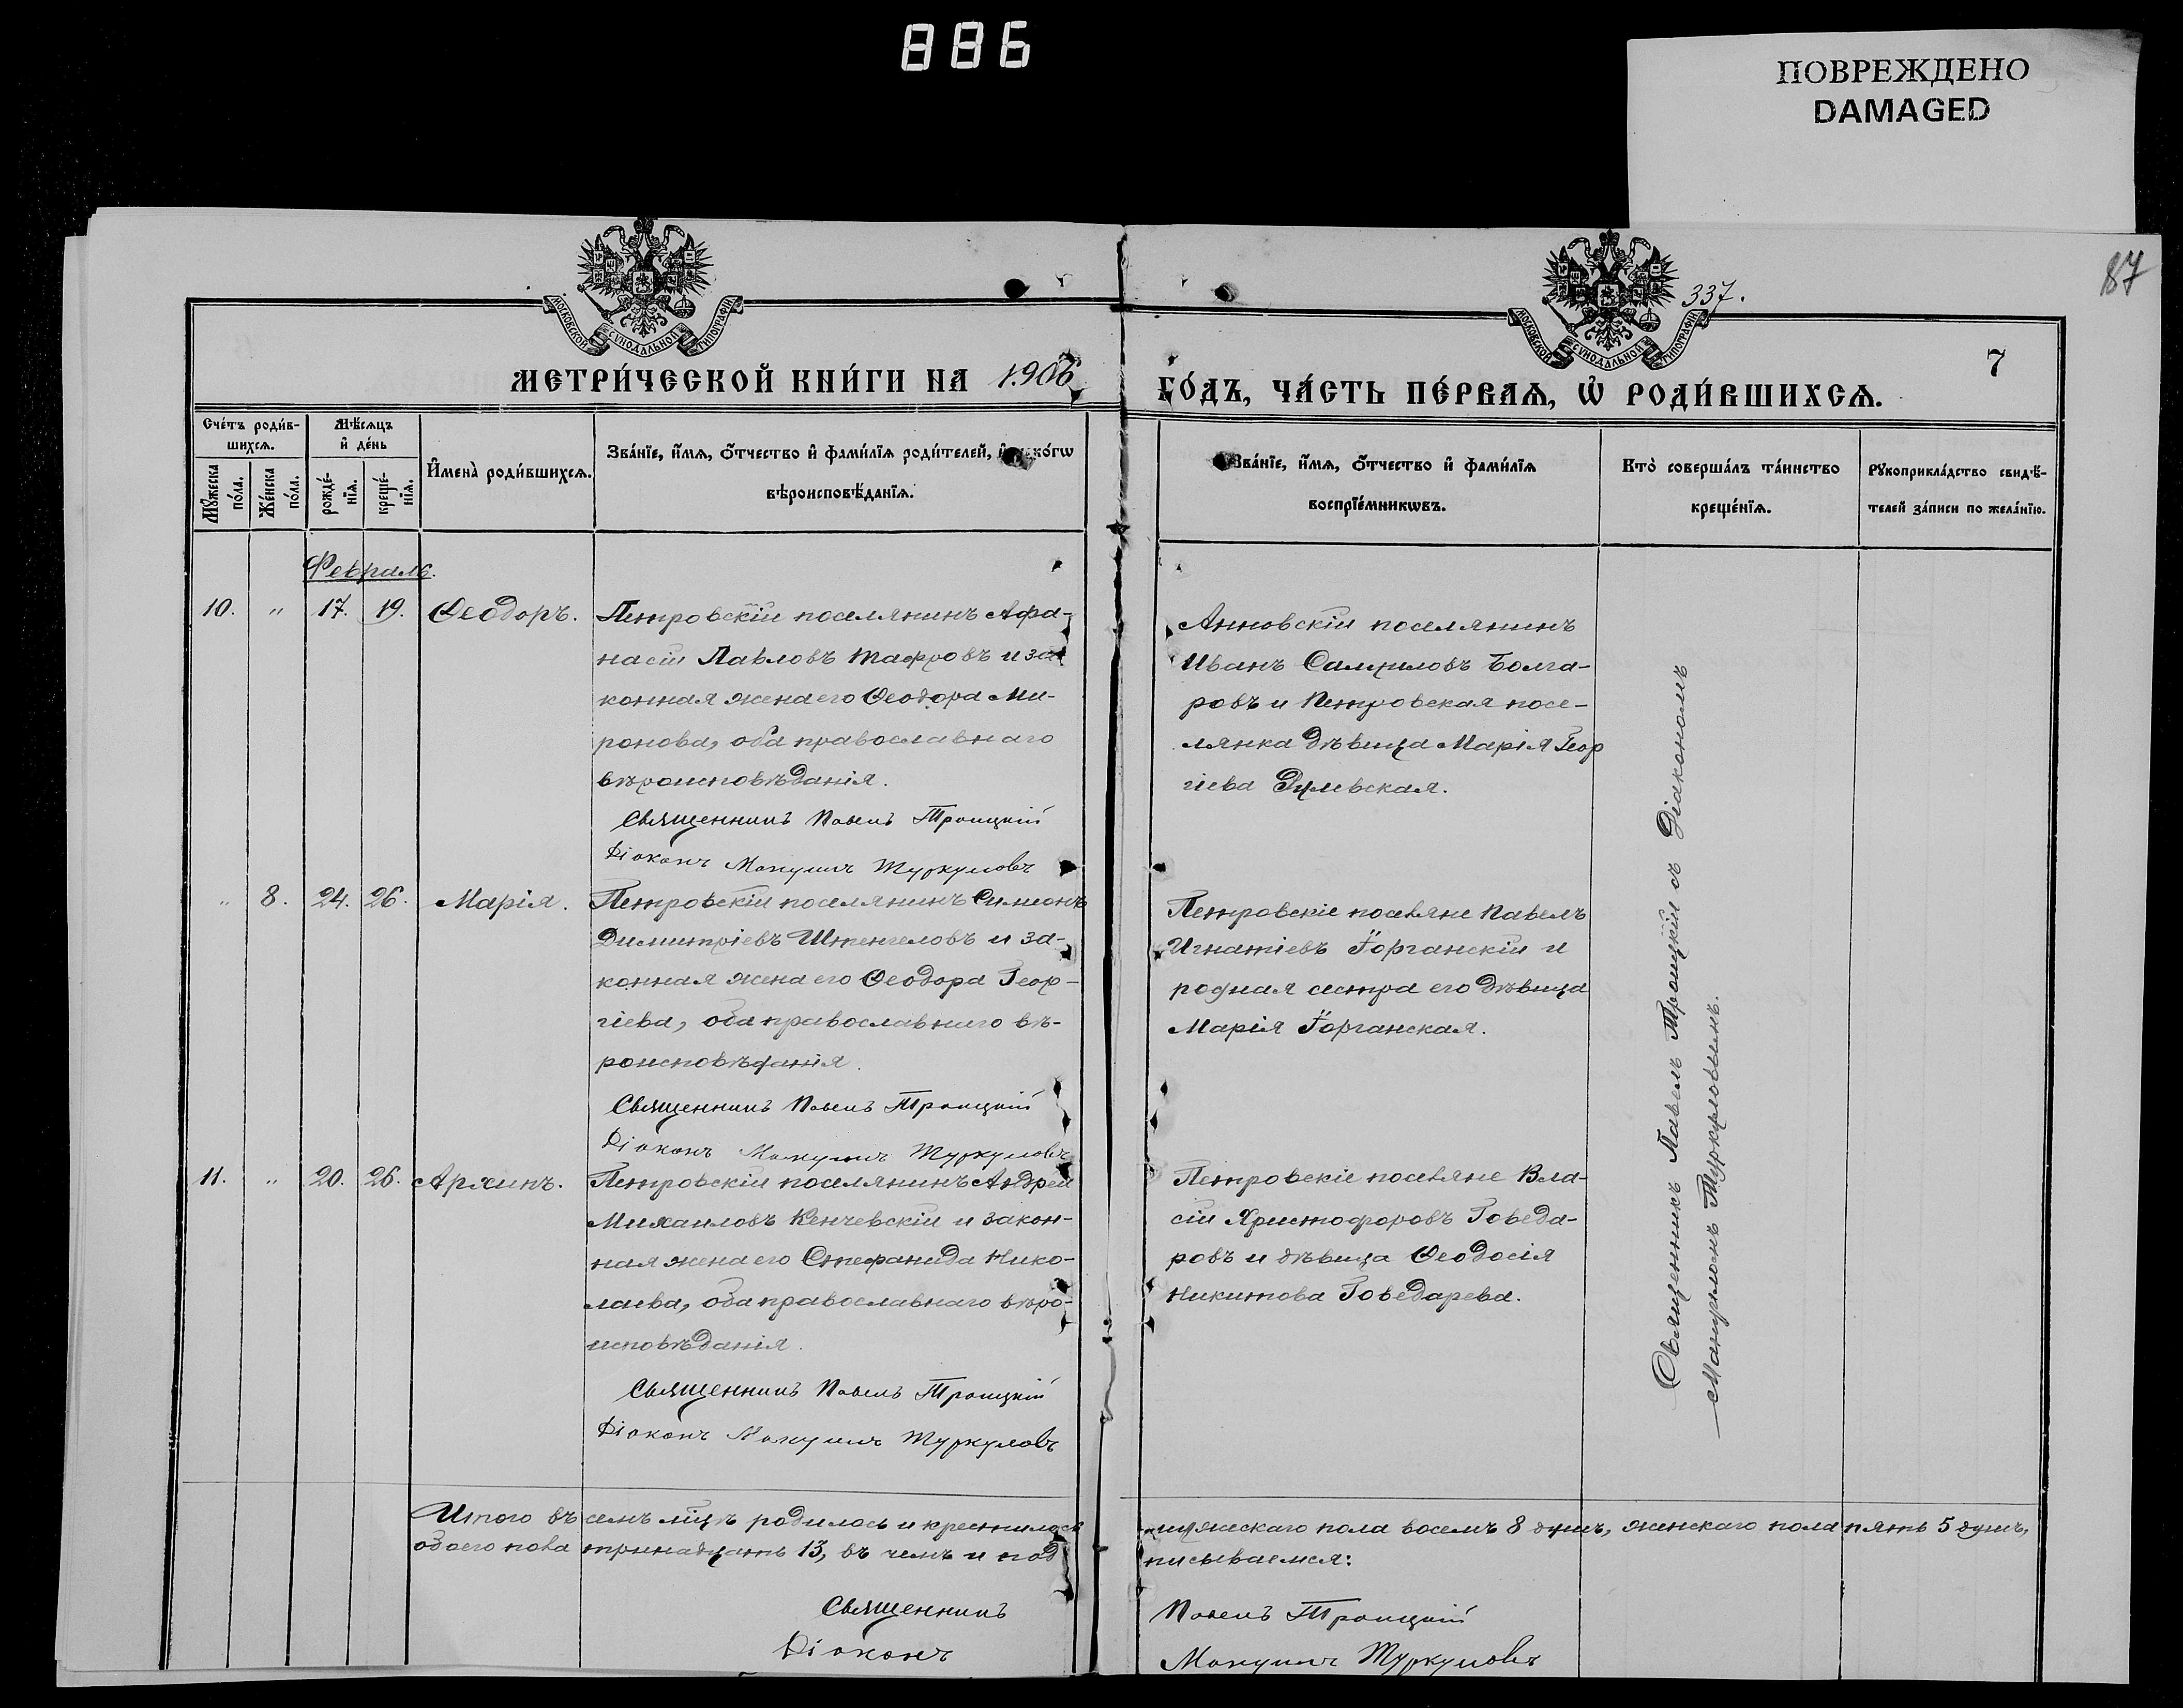 886
ПОВРЕЖДЕНО
DAMAGED
87
337.
7
МОСКОВСКОЙ СѴНОДАЛЬНОЙ ТИПОГРАФІИ
МОСКОВСКОЙ СѴНОДАЛЬНОЙ ТИПОГРАФІИ
МЕТРИ́ЧЕСКОЙ КНИ́ГИ НА 1906
ГО́ДЪ, ЧА́СТЬ ПЕ́РВАѦ, Ѽ РОДИ́ВШИХСѦ.
Сче́тъ роди́в-
шихсѧ.
Мѣ́сѧцъ
и҆ де́нь
Мꙋ́жеска
по́ла.
Же́нска
по́ла.
рожде́-
нїѧ.
креще́-
нїѧ.
И҆мена̀ роди́вшихсѧ.
Зва́нїе, и҆́мѧ, ѻ҆́тчество и҆ фами́лїѧ роди́телей, и҆ ко́гѡ
вѣроисповѣ́данїѧ.
Зва́нїе, и҆́мѧ, ѻ҆́тчество и҆ фами́лїѧ
воспрїе́мникѡвъ.
Кто̀ соверша́лъ та́инство
креще́нїѧ.
Рꙋкоприкла́дство свидѣ́-
телей за́писи по жела́нїю.
Февраль.
10. " 17. 19. Ѳеодоръ.
Петровскій поселянинъ Афа-
насій Павловъ Тафровъ и за
конная жена его Ѳеодора Ми-
ронова, оба православнаго
вѣроисповѣданія.
Священникъ Павелъ Троицкій
Діаконъ Мануилъ Туркуловъ
Анновскій поселянинъ
Иванъ Самуиловъ Болга-
ровъ и Петровская посе-
лянка дѣвица Марія Геор
гіева Дулевская.
" 8. 24. 26. Марія.
Петровскій поселянинъ Симеонъ
Димитріевъ Штенгеловъ и за-
конная жена его Ѳеодора Геор-
гіева, оба православнаго вѣ-
роисповѣданія.
Священникъ Павелъ Троицкій
Діаконъ Мануилъ Туркуловъ
Петровскіе поселяне Павелъ
Игнатіевъ Горганскій и
родная сестра его дѣвица
Марія Горганская.
11. " 20. 26. Архипъ.
Петровскій поселянинъ Андрей
Михаиловъ Кенчевскій и закон-
ная жена его Стефанида Нико-
лаева, оба православнаго вѣро-
исповѣданія.
Священникъ Павелъ Троицкій
Діаконъ Мануилъ Туркуловъ
Петровскіе поселяне Вла-
сій Христофоровъ Говеда-
ровъ и дѣвица Ѳеодосія
Никитова Говедарева.
Священникъ Павелъ Троицкій съ Діакономъ
Мануиломъ Туркуловымъ.
Итого въ семъ мцѣ родилось и крестилось мужескаго пола восемь 8 душъ, женскаго пола пять 5 душъ,
обоего пола тринадцать 13, въ чемъ и подписываемся:
Священникъ Павелъ Троицкій
Діаконъ Мануилъ Туркуловъ